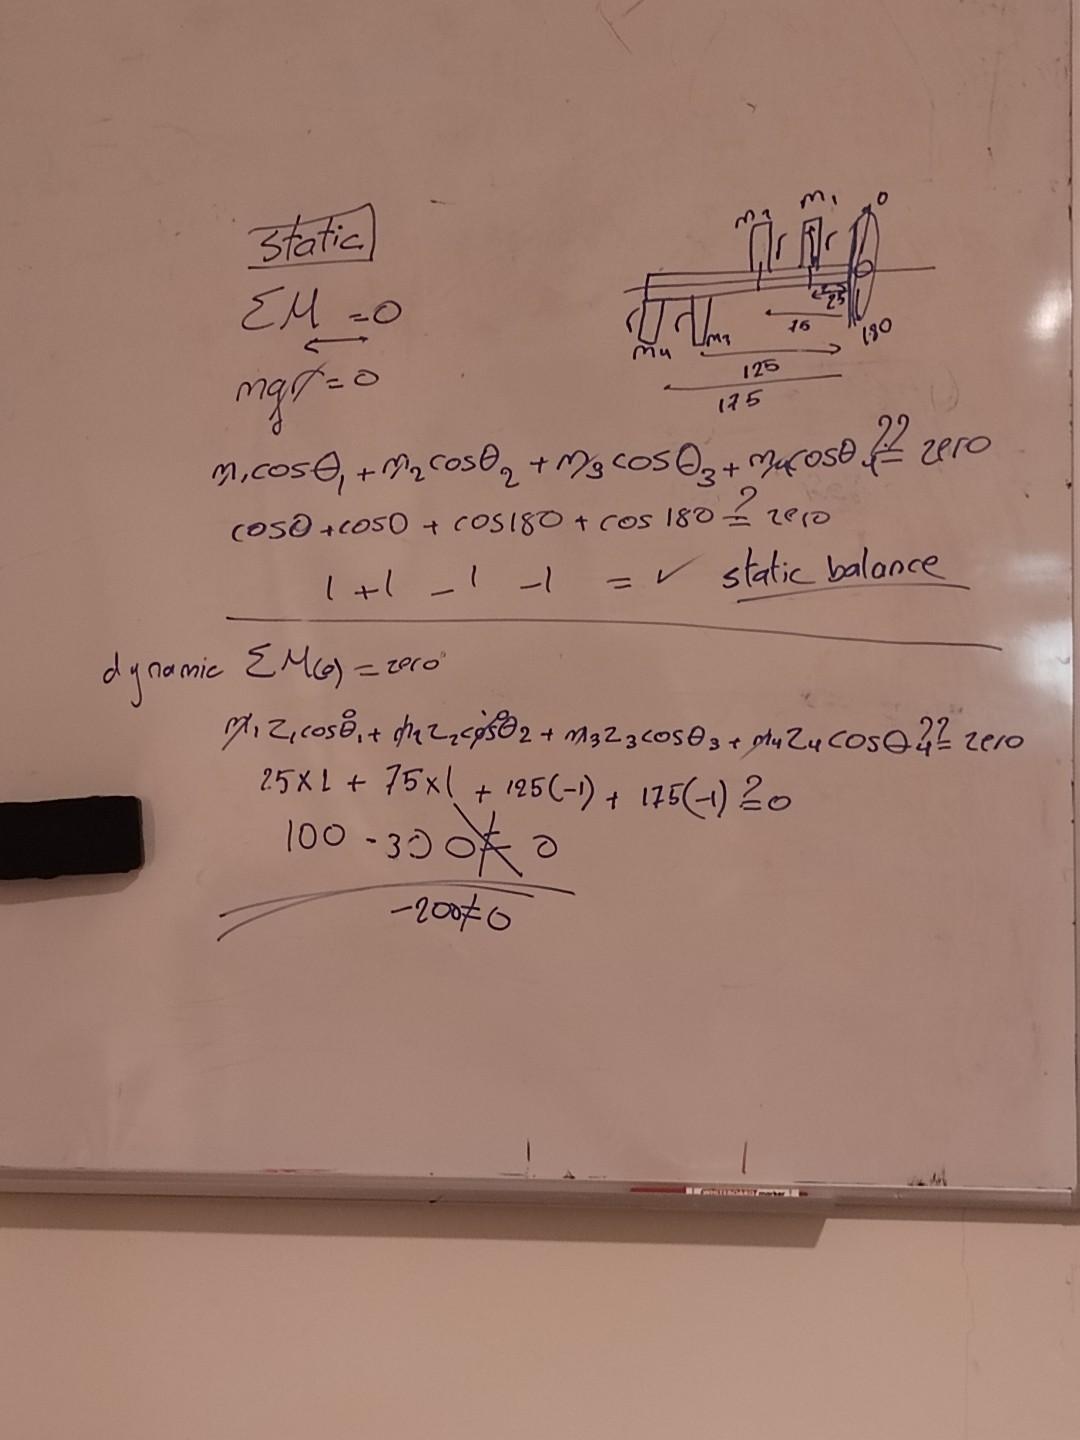 static
ΣM = 0
mgr = 0
m2 m1 0
r r
25
75
180
m4 m3
125
175
m1cosθ1 + m2cosθ2 + m3cosθ3 + m4cosθ4 ?? = zero
cos0 + cos0 + cos180 + cos180 ?= zero
1 + 1 - 1 - 1 = ✓ static balance
dynamic ΣM(o) = zero
m1z1cosθ1 + m2z2cosθ2 + m3z3cosθ3 + m4z4cosθ4 ?? = zero
25×1 + 75×1 + 125(-1) + 175(-1) ?= 0
100 - 300 ≠ 0
-200 ≠ 0
whiteboard marker